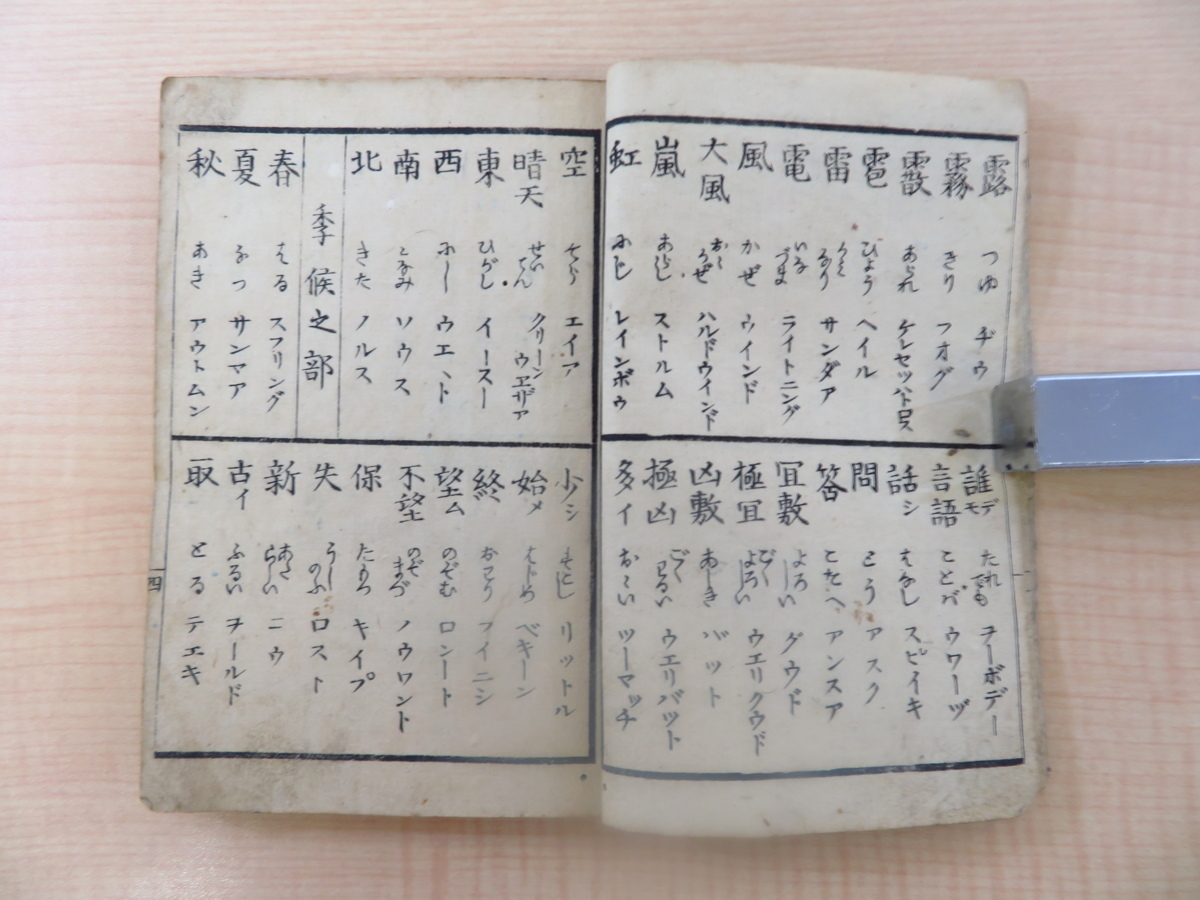 露 つゆ ヂウ
霧 きり フオグ
霰 あられ
雹 ひょう ヘイル
雷 かみなり サンダア
電 いなづま ライトニング
風 かぜ ウインド
大風 おゝかぜ ハルドウインド
嵐 あらし ストルム
虹 にじ レインボウ
誰デモ たれでも ヲーボデー
言語 ことバ ウワーヅ
話シ はなし スピイキ
問 とう アスク
答 こたへ アンスア
冝敷 よろしい グウド
極冝 ごくよろしい ウエリクウド
凶敷 あしき バット
極凶 ごくわるい ウエリバット
多イ おゝい ツーマッチ
空 そら エイア
晴天 せいてん クリーンウエザア
東 ひがし イースー
西 にし ウエスト
南 みなみ ソウス
北 きた ノルス
季候之部
春 はる スフリング
夏 なつ サンマア
秋 あき アウトムン
少シ すこし リットル
始メ はじめ ベキーン
終 おわり フイニシ
望ム のぞむ ロンート
不望 のぞまづ ノウワント
保 たもつ キイプ
失 うしのふ ロスト
新 あたらしい ニウ
古イ ふるい ヲールド
取 とる テエキ
四